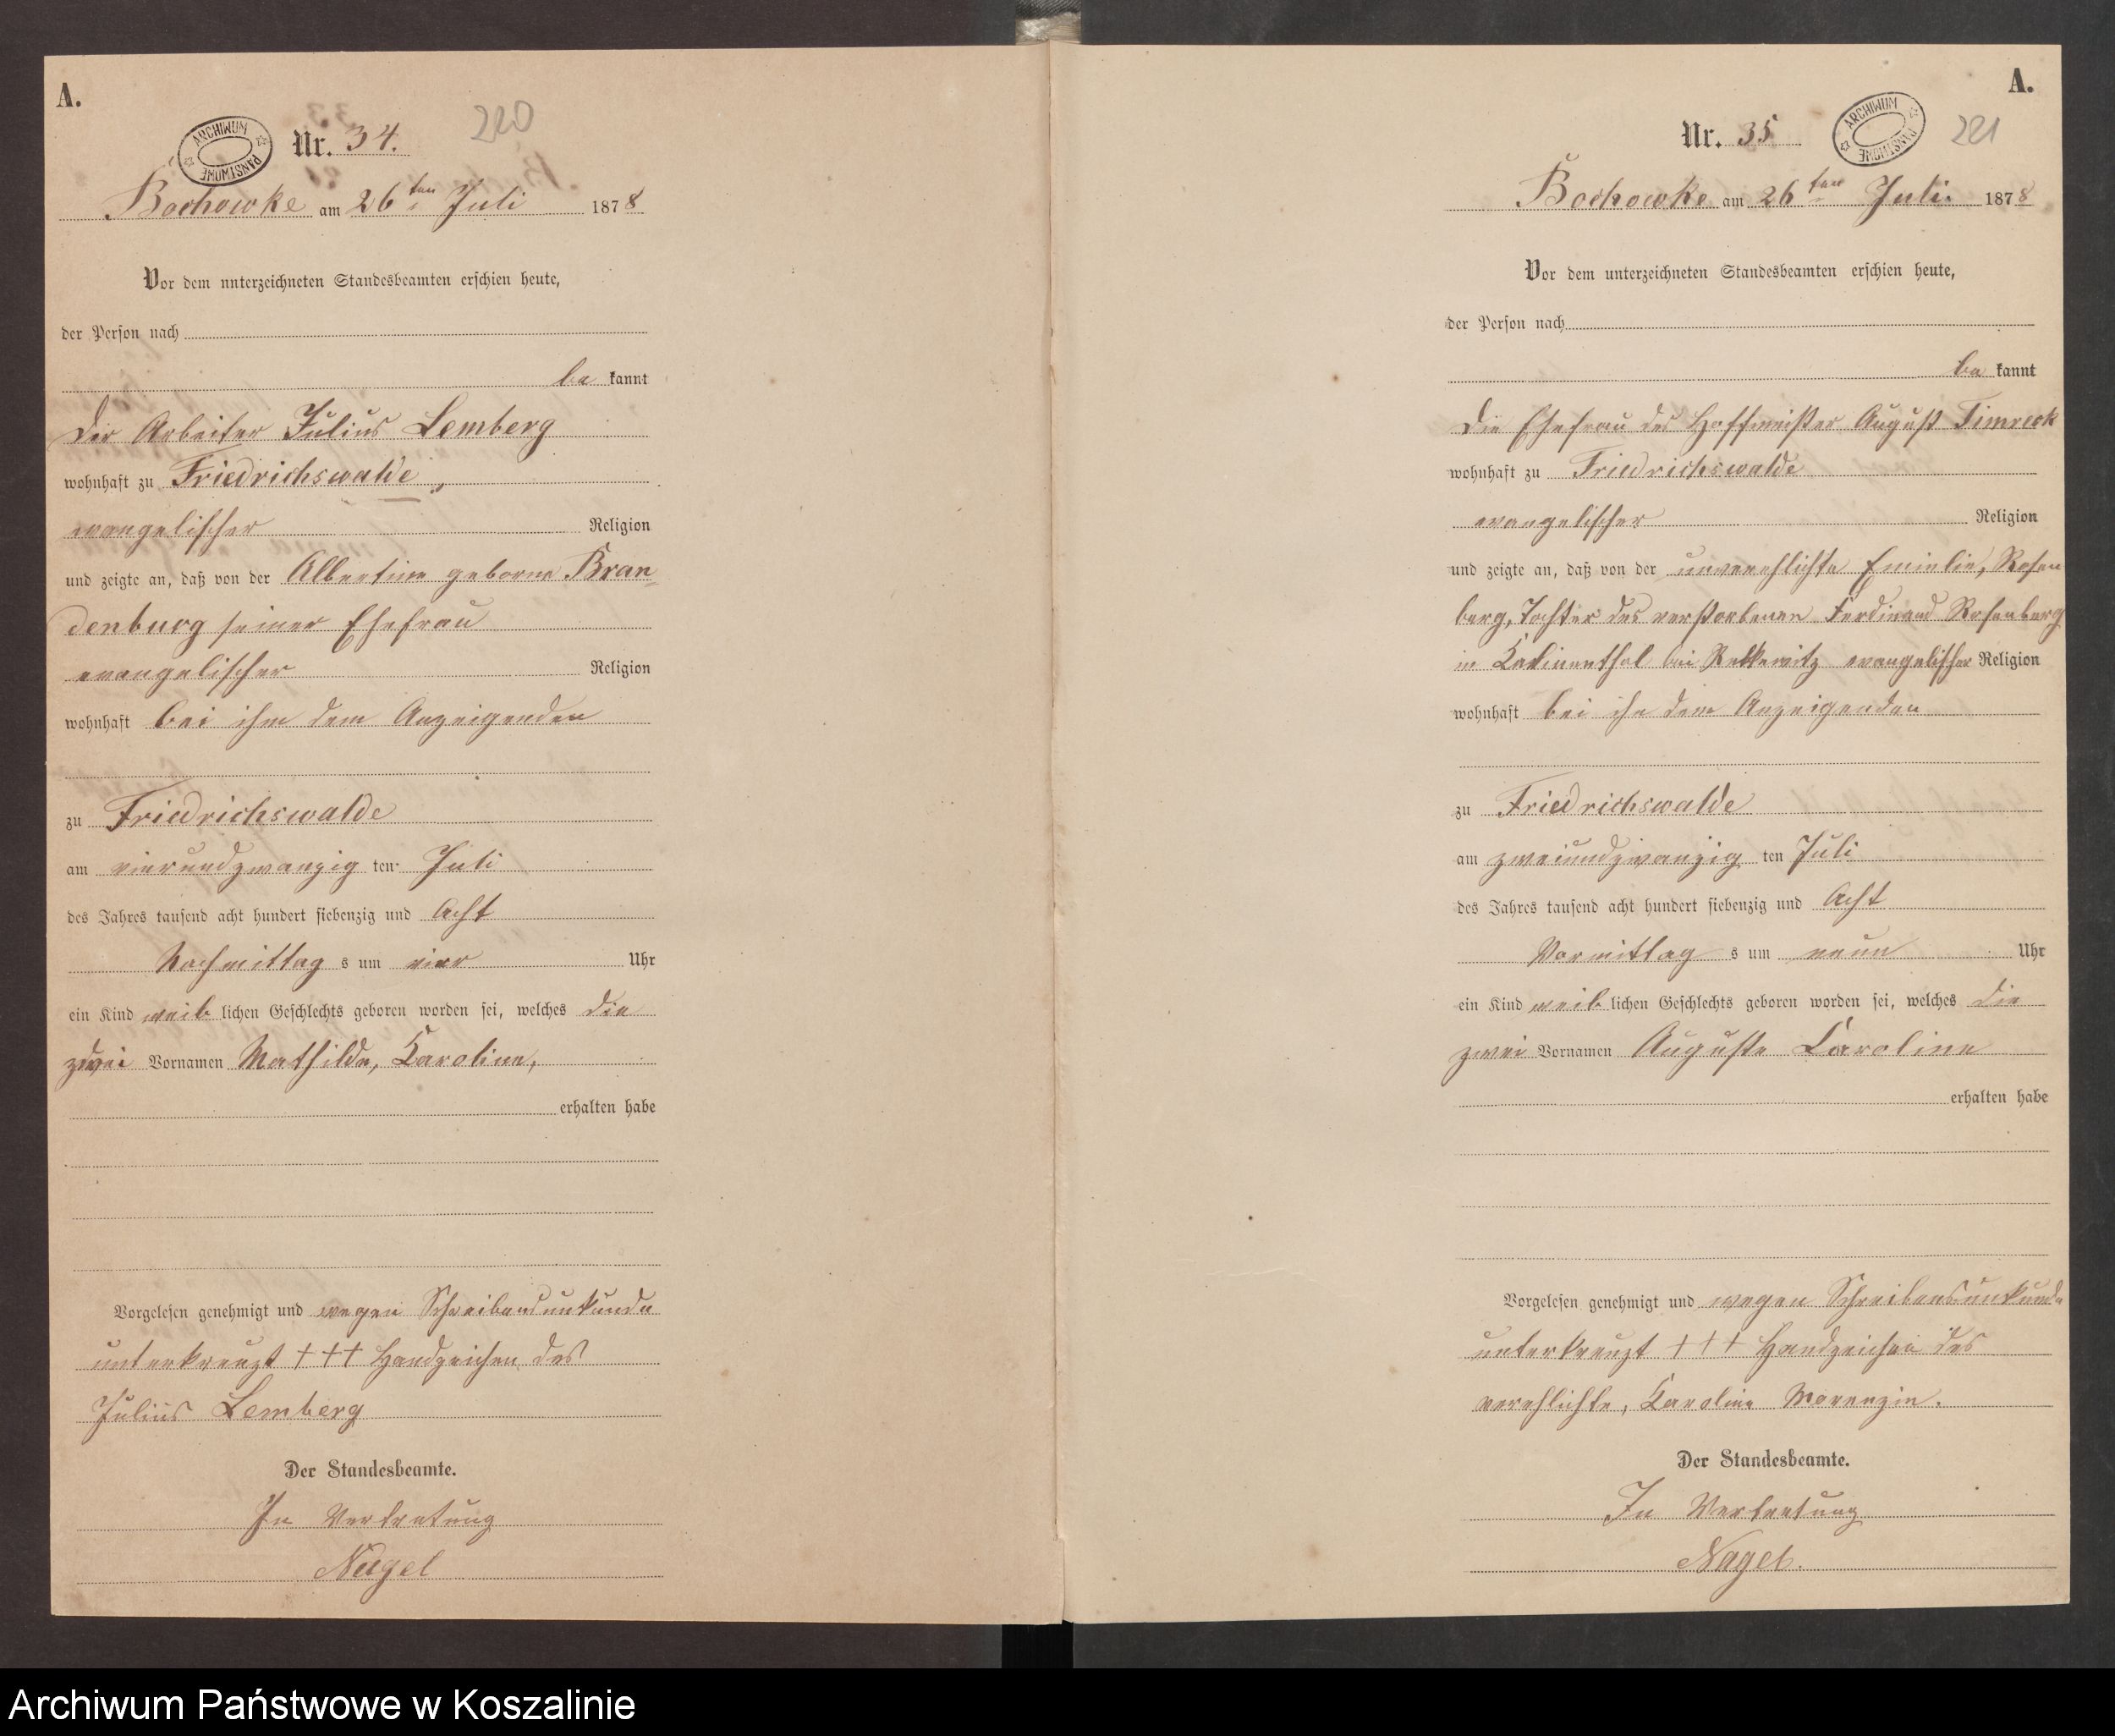 A.
ARCHIWUM PAŃSTWOWE
Nr. 34.
220
Bochowke am 26ten Juli 1878
Vor dem unterzeichneten Standesbeamten erschien heute,
der Person nach
be kannt
Der Arbeiter Julius Lemberg
wohnhaft zu Friedrichswalde,
evangelischer Religion
und zeigte an, daß von der Albertine geborne Bran
denburg seiner Ehefrau
evangelischer Religion
wohnhaft bei ihm dem Anzeigenden
zu Friedrichswalde
am vierundzwanzig ten Juli
des Jahres tausend acht hundert siebenzig und Acht
Nachmittag s um vier Uhr
ein Kind weib lichen Geschlechts geboren worden sei, welches die
zwei Vornamen Mathilde, Karoline,
erhalten habe
Vorgelesen genehmigt und wegen Schreibensunkunde
unterkreuzt +++ Handzeichen des
Julius Lemberg
Der Standesbeamte.
In Vertretung
Nagel
A.
Nr. 35
ARCHIWUM PAŃSTWOWE
221
Bochowke am 26ten Juli 1878
Vor dem unterzeichneten Standesbeamten erschien heute,
der Person nach
be kannt
Die Ehefrau des Hoffmeister August Timreck
wohnhaft zu Friedrichswalde
evangelischer Religion
und zeigte an, daß von der unverehlichte Emielie, Rosen
berg, Tochter des verstorbenen Ferdinand Rosenberg
in bei evangelischer Religion
wohnhaft bei ihr dem Anzeigenden
zu Friedrichswalde
am zweiundzwanzig ten Juli
des Jahres tausend acht hundert siebenzig und Acht
Vormittag s um neun Uhr
ein Kind weib lichen Geschlechts geboren worden sei, welches die
zwei Vornamen Auguste Caroline
erhalten habe
Vorgelesen genehmigt und wegen Schreibensunkunde
unterkreuzt +++ Handzeichen des
verehlichte, Karoline
Der Standesbeamte.
In Vertretung
Nagel.
Archiwum Państwowe w Koszalinie